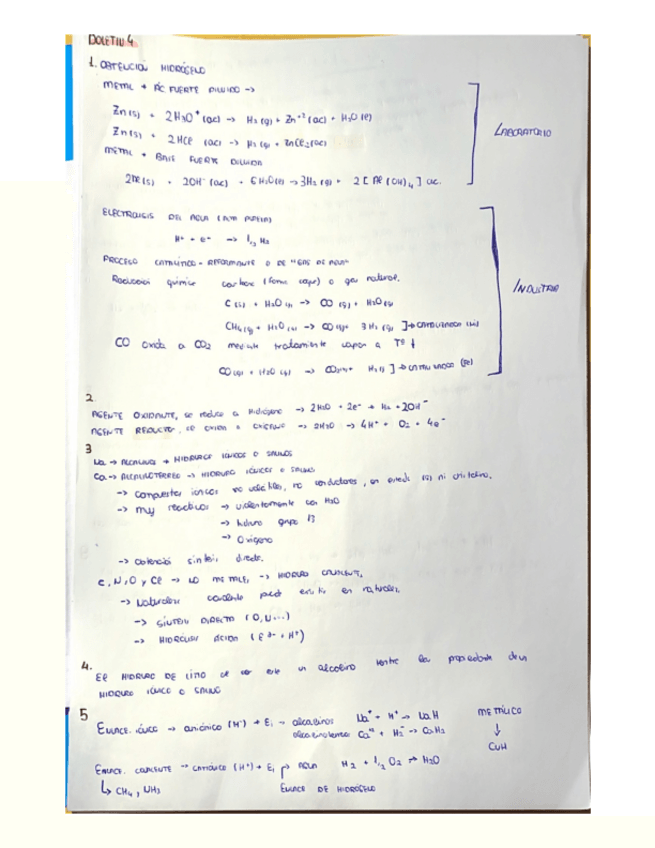 BOLETIN 4
1. OBTENCIÓN HIDRÓGENO
METAL + ÁC FUERTE DILUIDO ->
Zn(s) + 2H3O+ (ac) -> H2(g) + Zn+2 (ac) + H2O(l)
Zn(s) + 2HCl (ac) -> H2(g) + ZnCl2(ac)
LABORATORIO
METAL + BASE FUERTE DILUIDA
2Al(s) + 2OH- (ac) + 6H2O(l) -> 3H2(g) + 2[Al(OH)4] ac.
ELECTROLISIS DEL AGUA
H+ + e- -> 1/2 H2
PROCESO CATALÍTICO - REFORMANTE O DE "GAS DE AGUA"
Reducción química carbono (forma vapor) o gas natural.
INDUSTRIA
C(s) + H2O(g) -> CO(g) + H2O(g)
CH4(g) + H2O(g) -> CO(g) + 3H2(g) ] -> CATALIZADOR (Ni)
CO oxida a CO2 mediante tratamiento vapor a Tº ↓
CO(g) + H2O(g) -> CO2(g) + H2(g) ] -> CATALIZADOR (Fe)
2
AGENTE OXIDANTE, se reduce a Hidrógeno -> 2H2O + 2e- + H2 + 2OH-
AGENTE REDUCTOR, se oxida a OXÍGENO -> 2H2O -> 4H+ + O2 + 4e-
3
Na -> ALCALINOS -> HIDRUROS IÓNICOS O SALINOS
Ca -> ALCALINOTERREO -> HIDRURO IÓNICOS O SALINOS
-> compuestos iónicos no volátiles, no conductores, en estado (s) ni cristalino.
-> muy reactivos -> violentamente con H2O
-> hidruro grupo 13
-> Oxígeno
-> obtención síntesis directa.
C, N, O y Cl -> NO METALES -> HIDRURO COVALENTE.
-> Naturaleza covalente puede existir en naturaleza.
-> SÍNTESIS DIRECTA (O, N...)
-> HIDRÓLISIS ÁCIDA (E + H+)
4.
El HIDRURO DE LITIO al ser este un alcalino tendrá las propiedades de un
HIDRURO IÓNICO O SALINO
5
ENLACE. IÓNICO -> aniónico (H-) + E, -> alcalinos Na+ + H- -> NaH METÁLICO
alcalinoterreos Ca+2 + H2- -> CaH2 ↓
CuH
ENLACE. COVALENTE -> CATIÓNICO (H+) + E, AGUA H2 + 1/2 O2 -> H2O
↳ CH4, NH3 ENLACE DE HIDRÓGENO